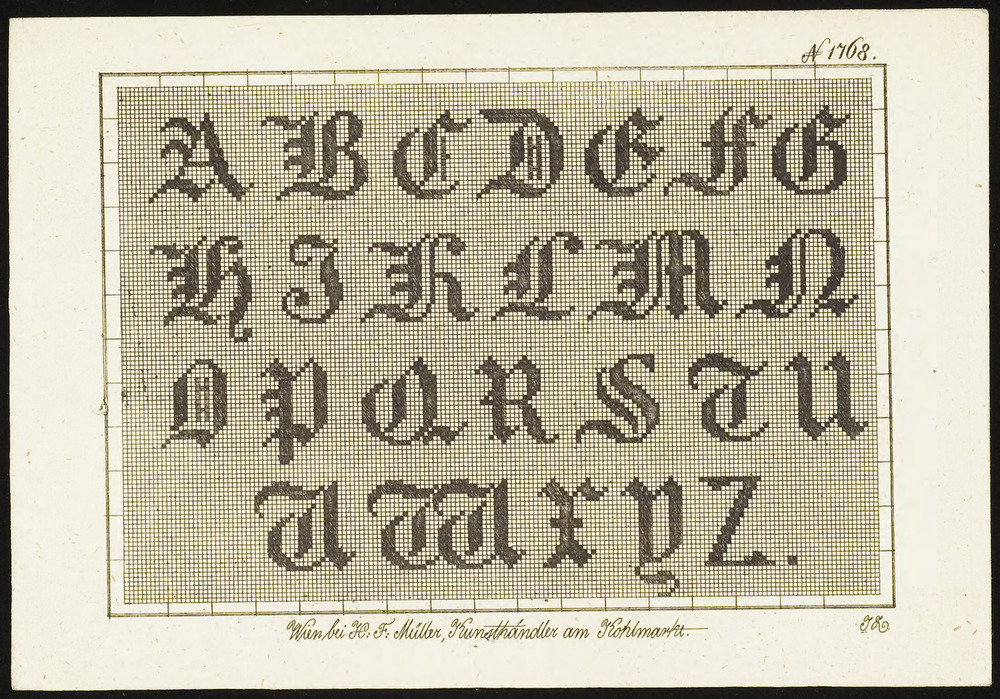 N 1768.
A B C D E F G
H I K L M N
O P Q R S T U
V W X Y Z.
Wien, bei H: F: Müller, Kunsthändler am Kohlmarkt.